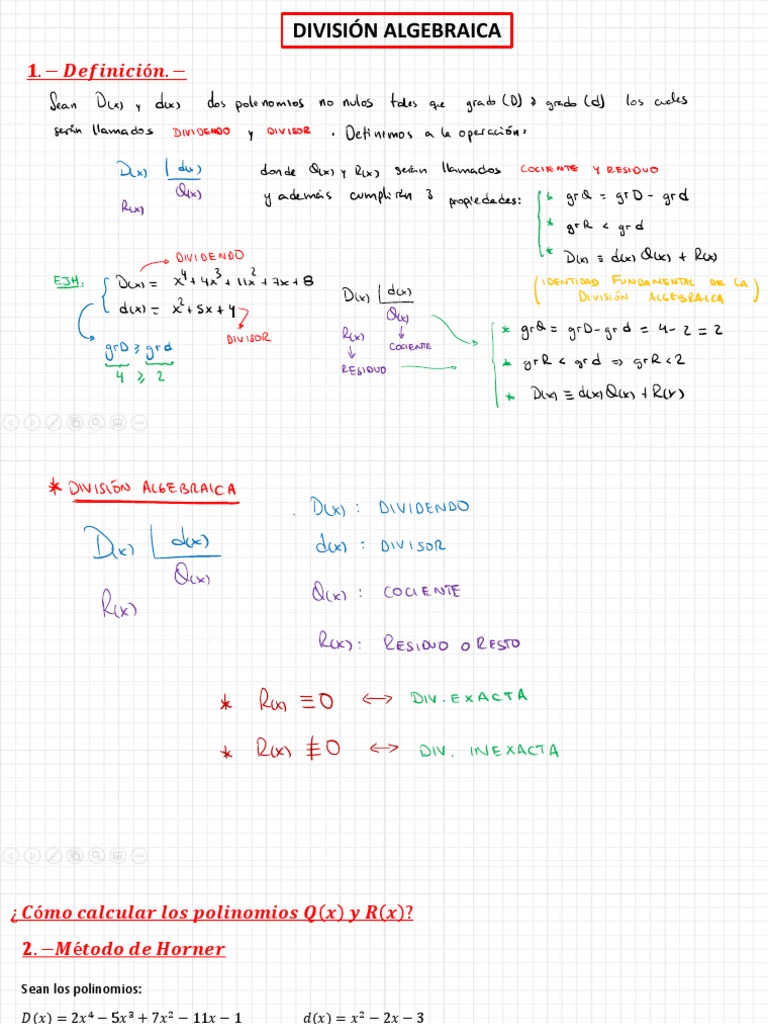 DIVISIÓN ALGEBRAICA
1.− Definición.−
Sean D(x) y d(x) dos polinomios no nulos tales que grado(D) ≥ grado(d) los cuales
serán llamados DIVIDENDO y DIVISOR. Definimos a la operación:
D(x) | d(x)
Q(x)
R(x)
donde Q(x) y R(x) serán llamados COCIENTE Y RESIDUO
y además cumplirán 3 propiedades:
* grQ = grD - grd
* grR < grd
* D(x) ≡ d(x) Q(x) + R(x)
(IDENTIDAD FUNDAMENTAL DE LA
DIVISIÓN ALGEBRAICA)
EJM:
DIVIDENDO
D(x) = x⁴ + 4x³ + 11x² + 7x + 8
d(x) = x² + 5x + 4
DIVISOR
grD ≥ grd
4 ≥ 2
D(x) | d(x)
Q(x)
R(x)
COCIENTE
RESIDUO
* grQ = grD - grd = 4 - 2 = 2
* grR < grd ⇒ grR < 2
* D(x) ≡ d(x) Q(x) + R(x)
* DIVISIÓN ALGEBRAICA
D(x) | d(x)
Q(x)
R(x)
D(x) : DIVIDENDO
d(x) : DIVISOR
Q(x) : COCIENTE
R(x) : RESIDUO O RESTO
* R(x) ≡ 0 ↔ DIV. EXACTA
* R(x) ≢ 0 ↔ DIV. INEXACTA
¿Cómo calcular los polinomios Q(x) y R(x)?
2.−Método de Horner
Sean los polinomios:
D(x) = 2x⁴ − 5x³ + 7x² − 11x − 1 d(x) = x² − 2x − 3